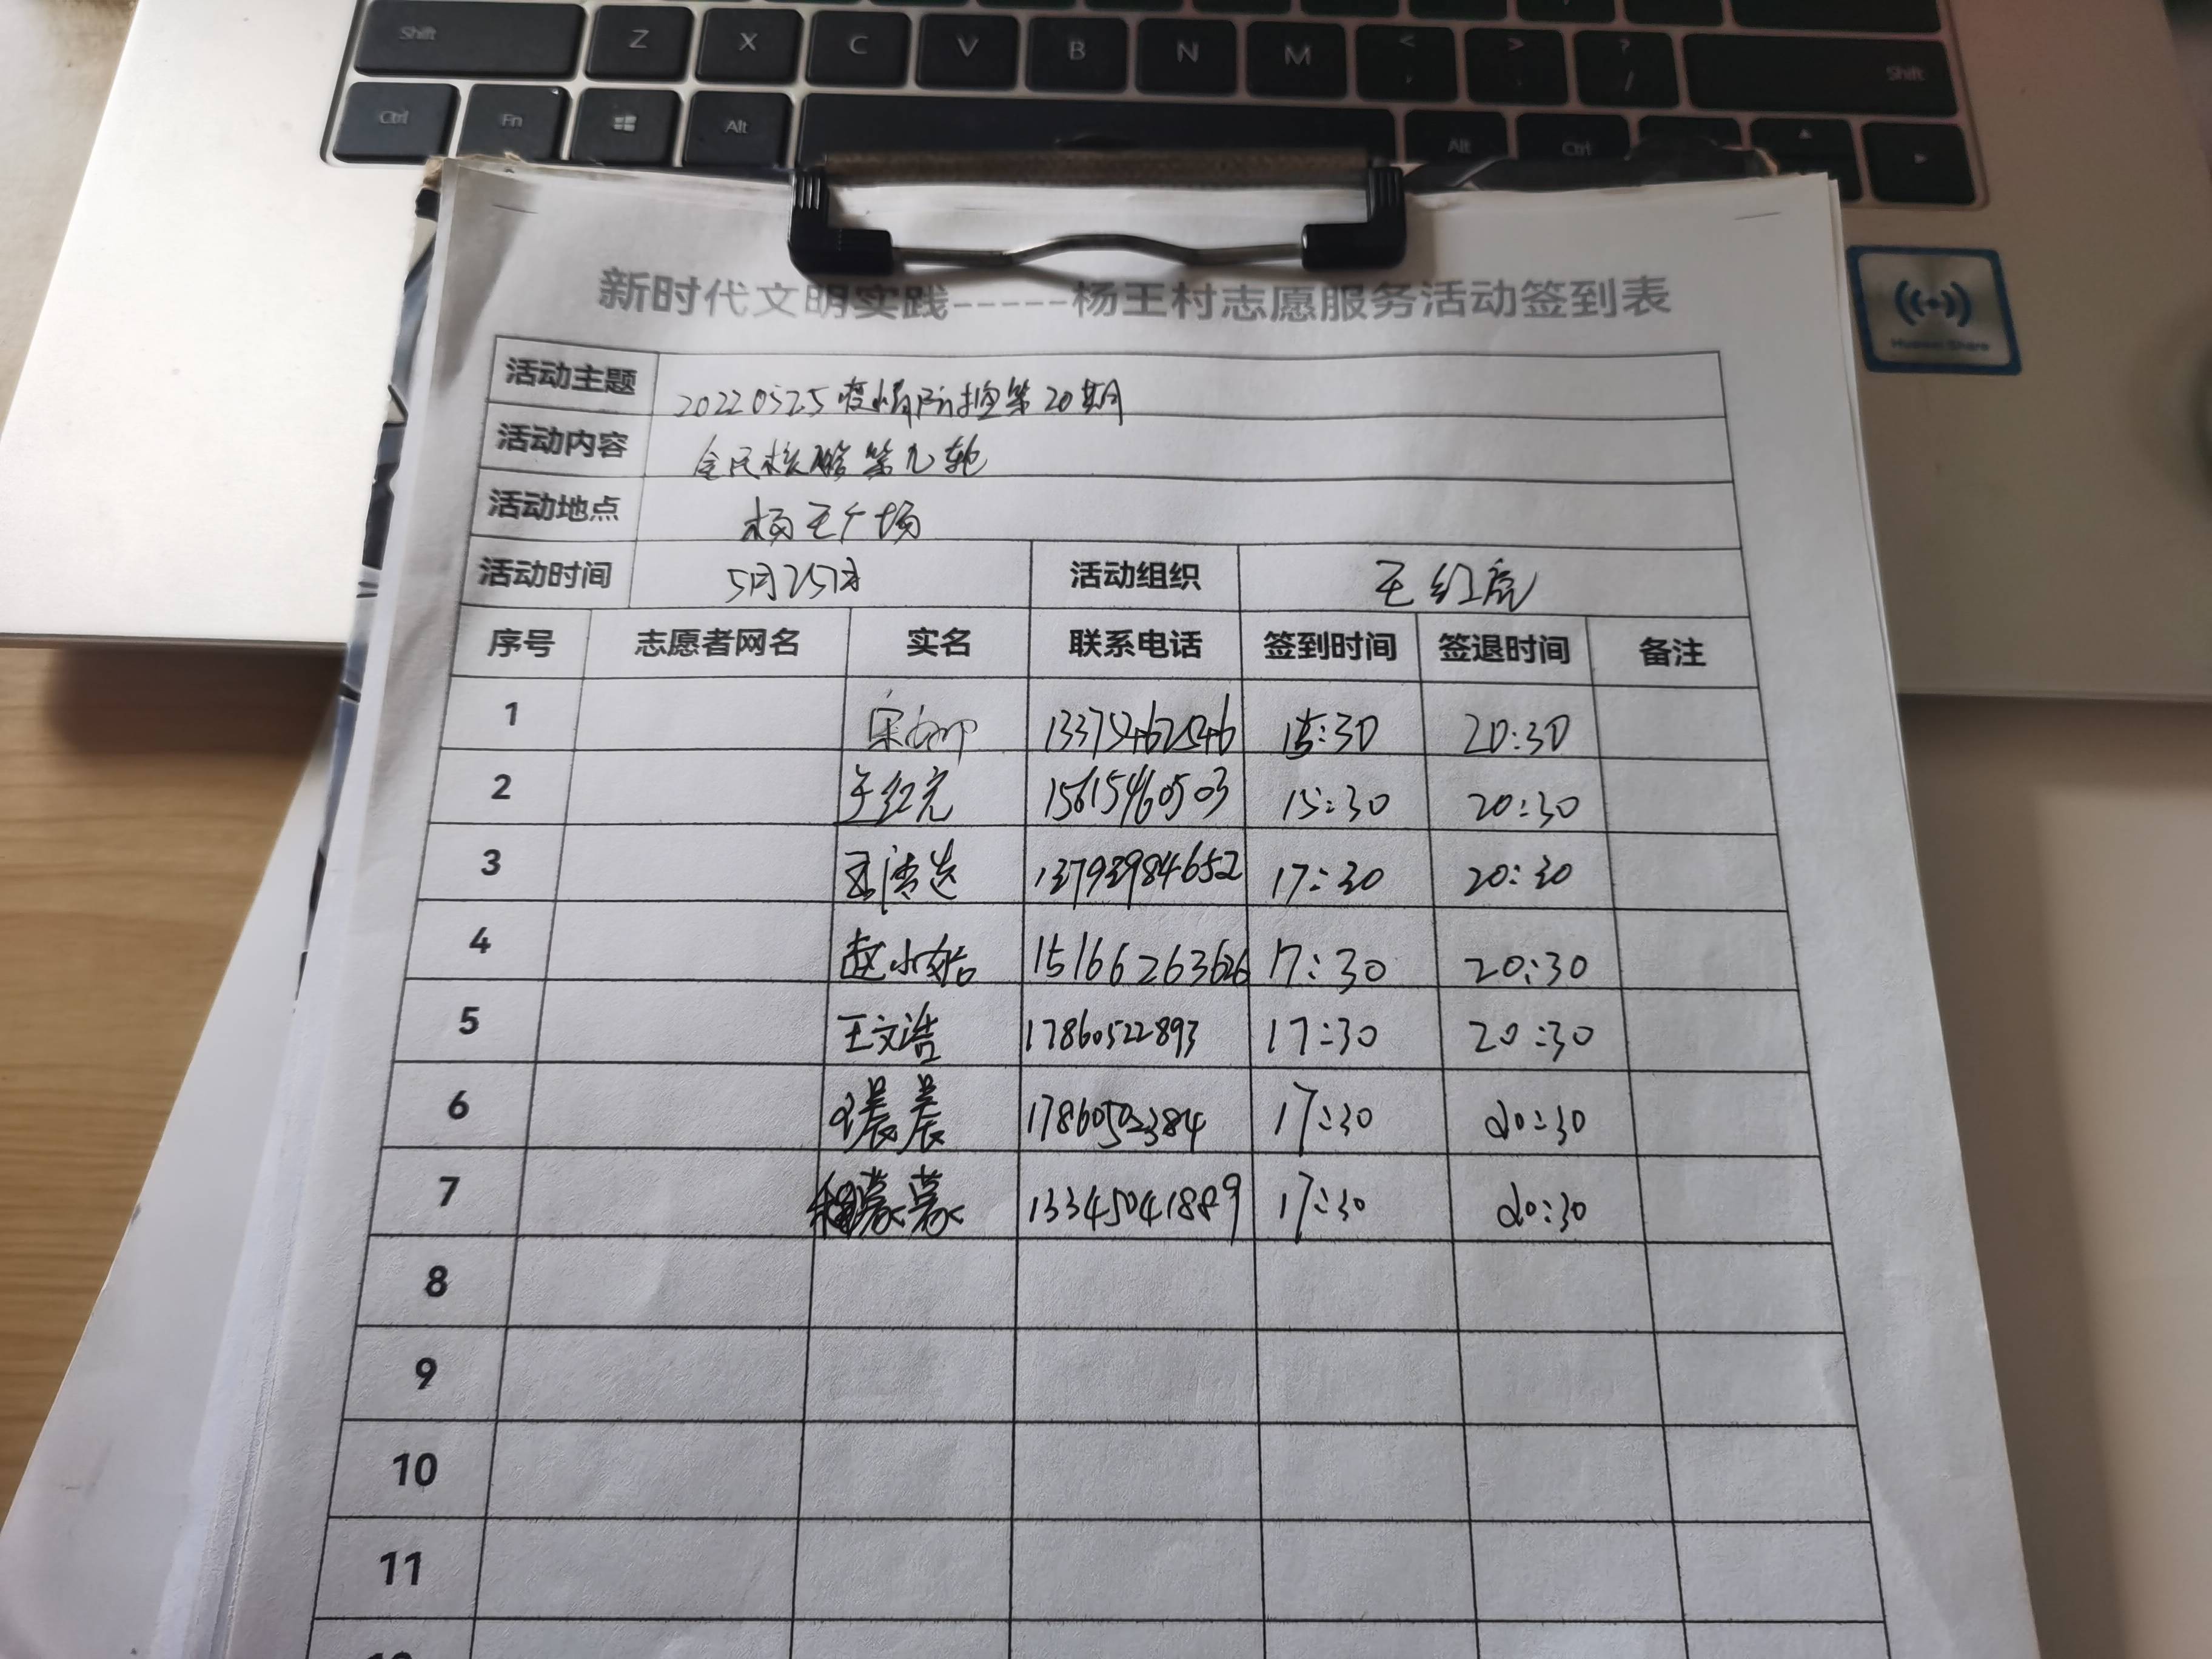 Shift Z X C V B N M < , > . ? / Shift
Ctrl Fn Alt Alt Ctrl
Huawei Share
新时代文明实践-----杨王村志愿服务活动签到表
活动主题 20220525疫情防控第20期
活动内容 全民核酸第九轮
活动地点 杨王广场
活动时间 5月25日 活动组织 王红亮
序号 志愿者网名 实名 联系电话 签到时间 签退时间 备注
1 13375467546 15:30 20:30
2 王红亮 15615460503 15:30 20:30
3 13793984652 17:30 20:30
4 赵小姑 15166263626 17:30 20:30
5 王文浩 17860522893 17:30 20:30
6 晨晨 17860502384 17:30 20:30
7 程蒙蒙 13345041889 17:30 20:30
8
9
10
11